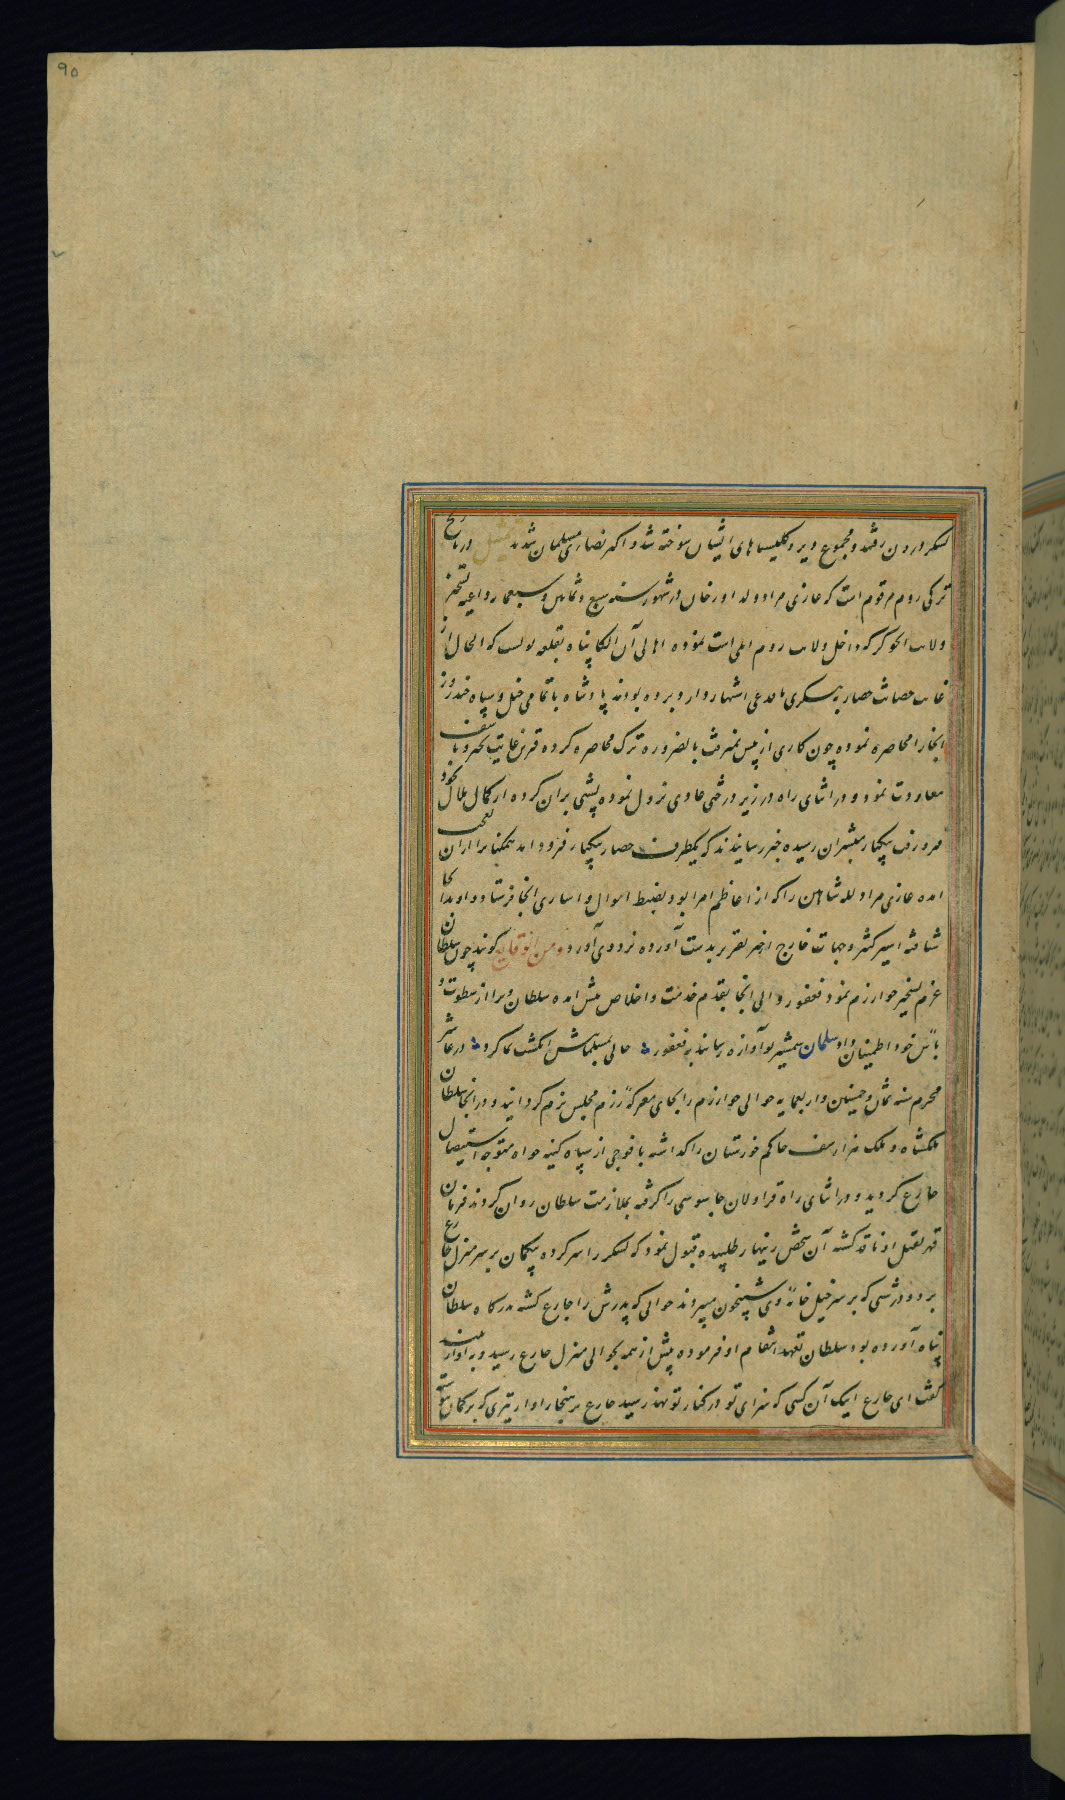 ٩٥
لشکر درون رفتند و مجموع دیر و کلیساهای ایشان سوخته شد و اکثر نصاری مسلمان شدند در تاریخ
ترکی روم مرقوم است که غازی مراد ولد اورخان در شهور سنه سبع و ثمانین و سبعمایه داعیه تسخیر
ولایت که داخل ولایت روم ایلی است نموده اهالی آن الکا پناه بقلعه که الحال از
غایت حصانت حصار اشتهار دارد برده بودند پادشاه با تمامی خیل و سپاه چند روز
آنجا را محاصره نموده چون کاری از پیش نمیرفت بالضروره ترک محاصره کرده قرین غایت تحیر و تأسف
معاودت نمود و در اثنای راه در زیر درختی نزول نموده پشتی بران کرده از کمال ملال بخود
فرو رفت یکبار مبشران رسیده خبر رسانیدند که یکطرف حصار یکبار فرود آمد همکنانرا ازان تعجب
آمده غازی مراد لله شاهین را که از اعاظم امرا بود بضبط اموال و اساری آنجا فرستاد و او بدانجا
شتافته اسیر کثیر و جهات خارج از حیز تقریر بدست آورده نزد وی آورد ومن الوقایع گویند چون سلطان
عزم تسخیر خوارزم نمود فغفور والی آنجا بقدم خدمت و اخلاص پیش آمده سلطان ویرا از سطوت و
بأس خود اطمینان داد سلمان شمشیر تو آوازه رسانید به فغفور حالی مسلمانیش انگشت نما کرد در عاشر
محرم سنه ثمان و خمسین و اربعمایه حوالی خوارزم را بجای معرکه رزم مجلس بزم گردانید و در آنجا سلطان
ملکشاه و ملک هزارسف حاکم خوزستان را گذاشته با فوجی از سپاه کینه خواه متوجه استیصال
جازغ گردید و در اثنای راه قراولان جاسوسی را گرفته بملازمت سلطان روان کردند فرمان
قهر بقتل او نافذ گشته آن شخص زینهار طلبیده قبول نمود که لشکر را سر کرده یکمان بر سر منزل جازغ
برد و در شبی که بر سر خیل خانه وی شبیخون میبردند جوانی که پدرش را جازغ کشته بدرگاه سلطان
پناه آورده بود سلطان تعهد انتقام او فرموده پیش از همه بحوالی منزل جازغ رسید و به آواز بلند
گفت ای جازغ اینک آن کسی که سزای تو در کنار تو نهد رسید جازغ بر هنجار آواز تیری که بر کمان